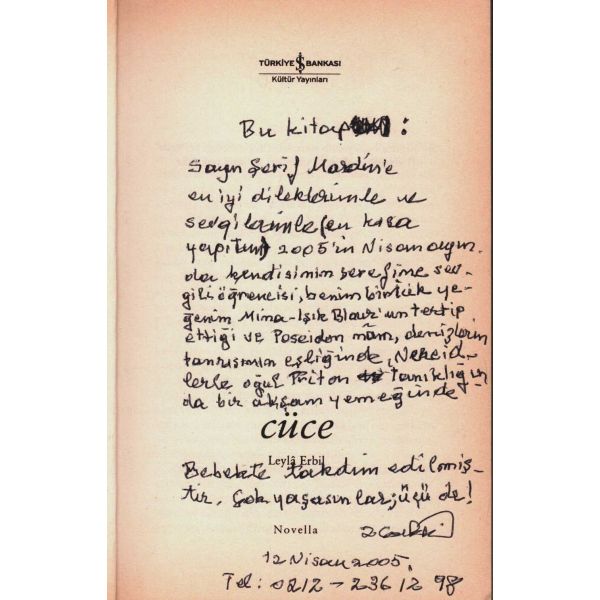 TÜRKİYE İŞ BANKASI
Kültür Yayınları
Bu kitap :
Sayın Şerif Mardin'e
en iyi dileklerimle ve
sevgilerimle (en kısa
yapıtım) 2005'in Nisan ayın
da kendisinin şerefine sev-
gili öğrencisi, benim biricik ye-
ğenim Mina-Işık Blaur'un tertip
ettiği ve Poseidon nâm, denizlerin
tanrısının eşliğinde, Nereid-
lerle oğul Triton tanıklığın
da bir akşam yemeğinde
cüce
Leylâ Erbil
Bebekte takdim edilmiş-
tir. Çok yaşasınlar, üçü de!
Novella
12 Nisan 2005.
Tel: 0212 - 236 12 98